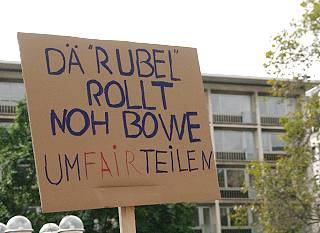 DÄ "RUBEL"
ROLLT
NOH BOVVE
UMFAIRTEILEN